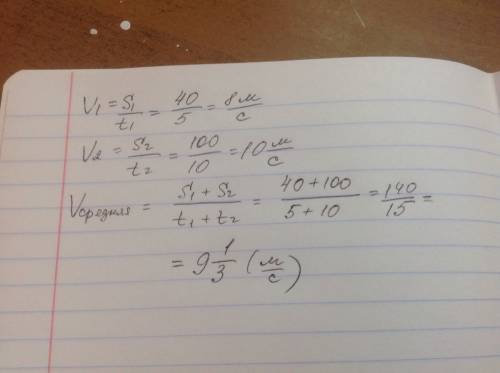 V₁ = S₁/t₁ = 40/5 = 8 м/с
V₂ = S₂/t₂ = 100/10 = 10 м/с
Vсредняя = (S₁ + S₂)/(t₁ + t₂) = (40 + 100)/(5 + 10) = 140/15 =
= 9 1/3 (м/с)